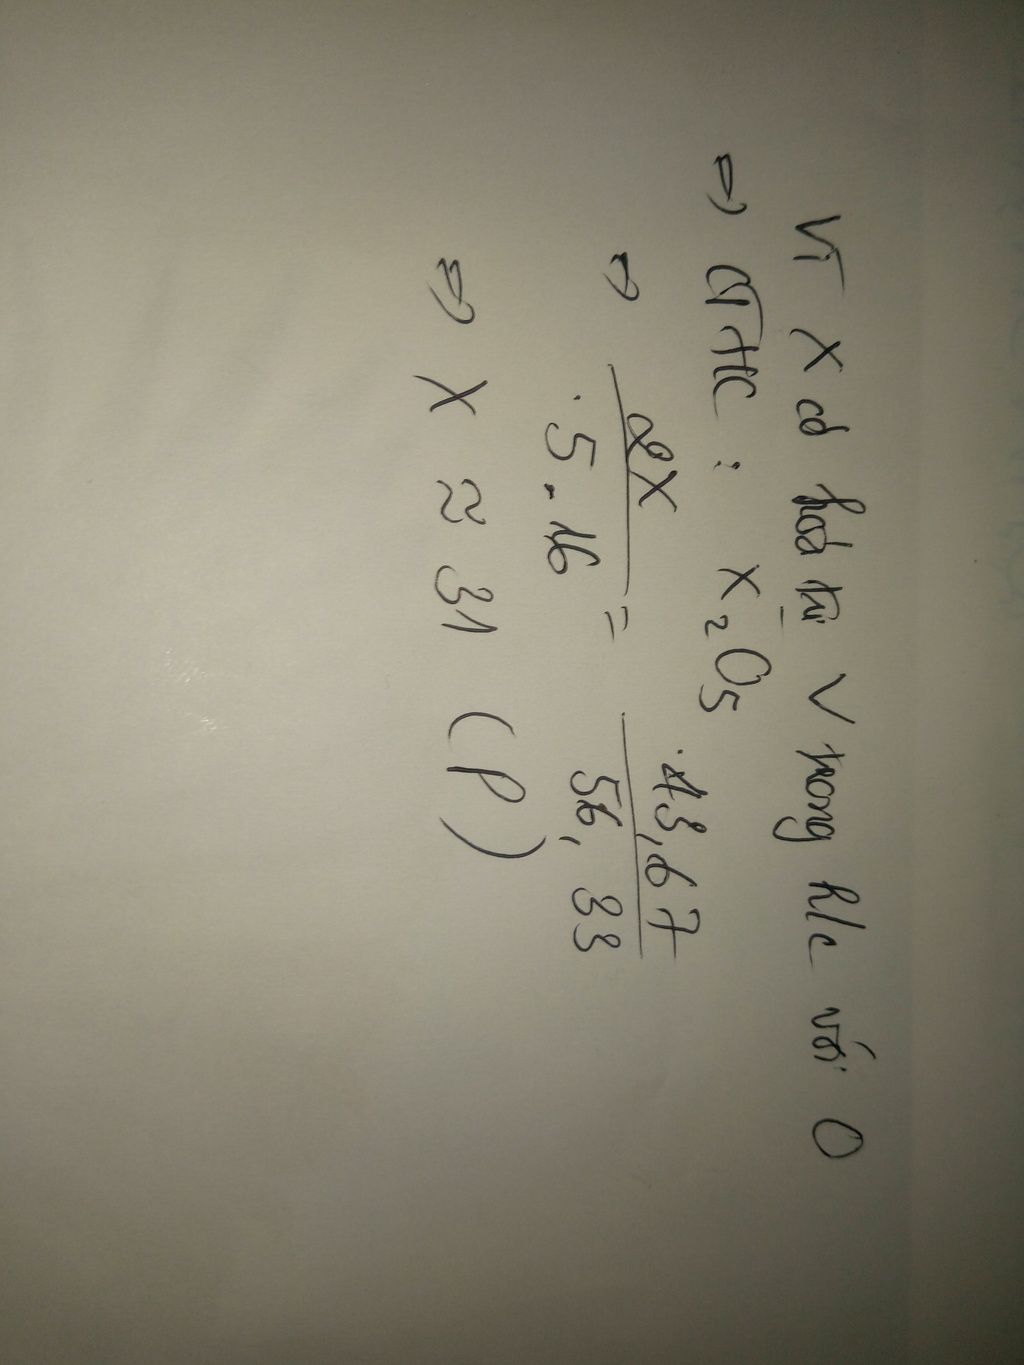 Vì X có hoá trị V trong h/c với O
=> CTHC : X₂O₅
=> 2X / 5.16 = 43,67 / 56,33
=> X ≈ 31 (P)